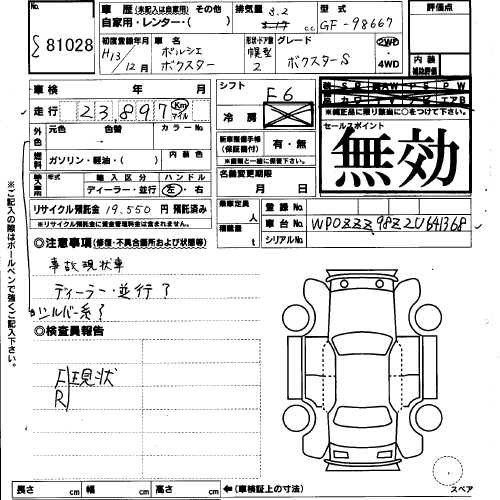 81028
車歴 (未記入は自家用) その他
自家用・レンター・( )
排気量 3.2 cc
型式 GF-98667
評価点
初度登録年月 H13/12月
車名 ポルシェ ボクスター
形状・ドア数 幌型 2
グレード ボクスターS
2WD ・ 4WD
内装 補助評価
車検 年 月
シフト F6
走行 23,897 Km マイル
冷房
※純正品に限り該当に○をつけて下さい。
外色 元色 色替 カラーNo
セールスポイント
無効
新車整備手帳 (保証書付) 有・無
※書類と一緒に保管下さい。
燃料 ガソリン・軽油・( ) 内装色
輸入車 年式 輸入区分 ハンドル
ディーラー・並行 左・右
名義変更期限 月 日
リサイクル預託金 19,550 円 預託済み
※リサイクル預託金に資金管理料金は含まれません。
乗車定員 人
積載量 t
登録No.
車台No. WP0ZZZ98Z2U641368
シリアルNo.
◎注意事項 (修復・不具合箇所および状態等)
事故現状車
ディーラー・並行?
シルバー系?
◎検査員報告
F 現状
R
※ご記入の際はボールペンで強くご記入下さい。
スペア
長さ cm 幅 cm 高さ cm ←(車検証上の寸法)